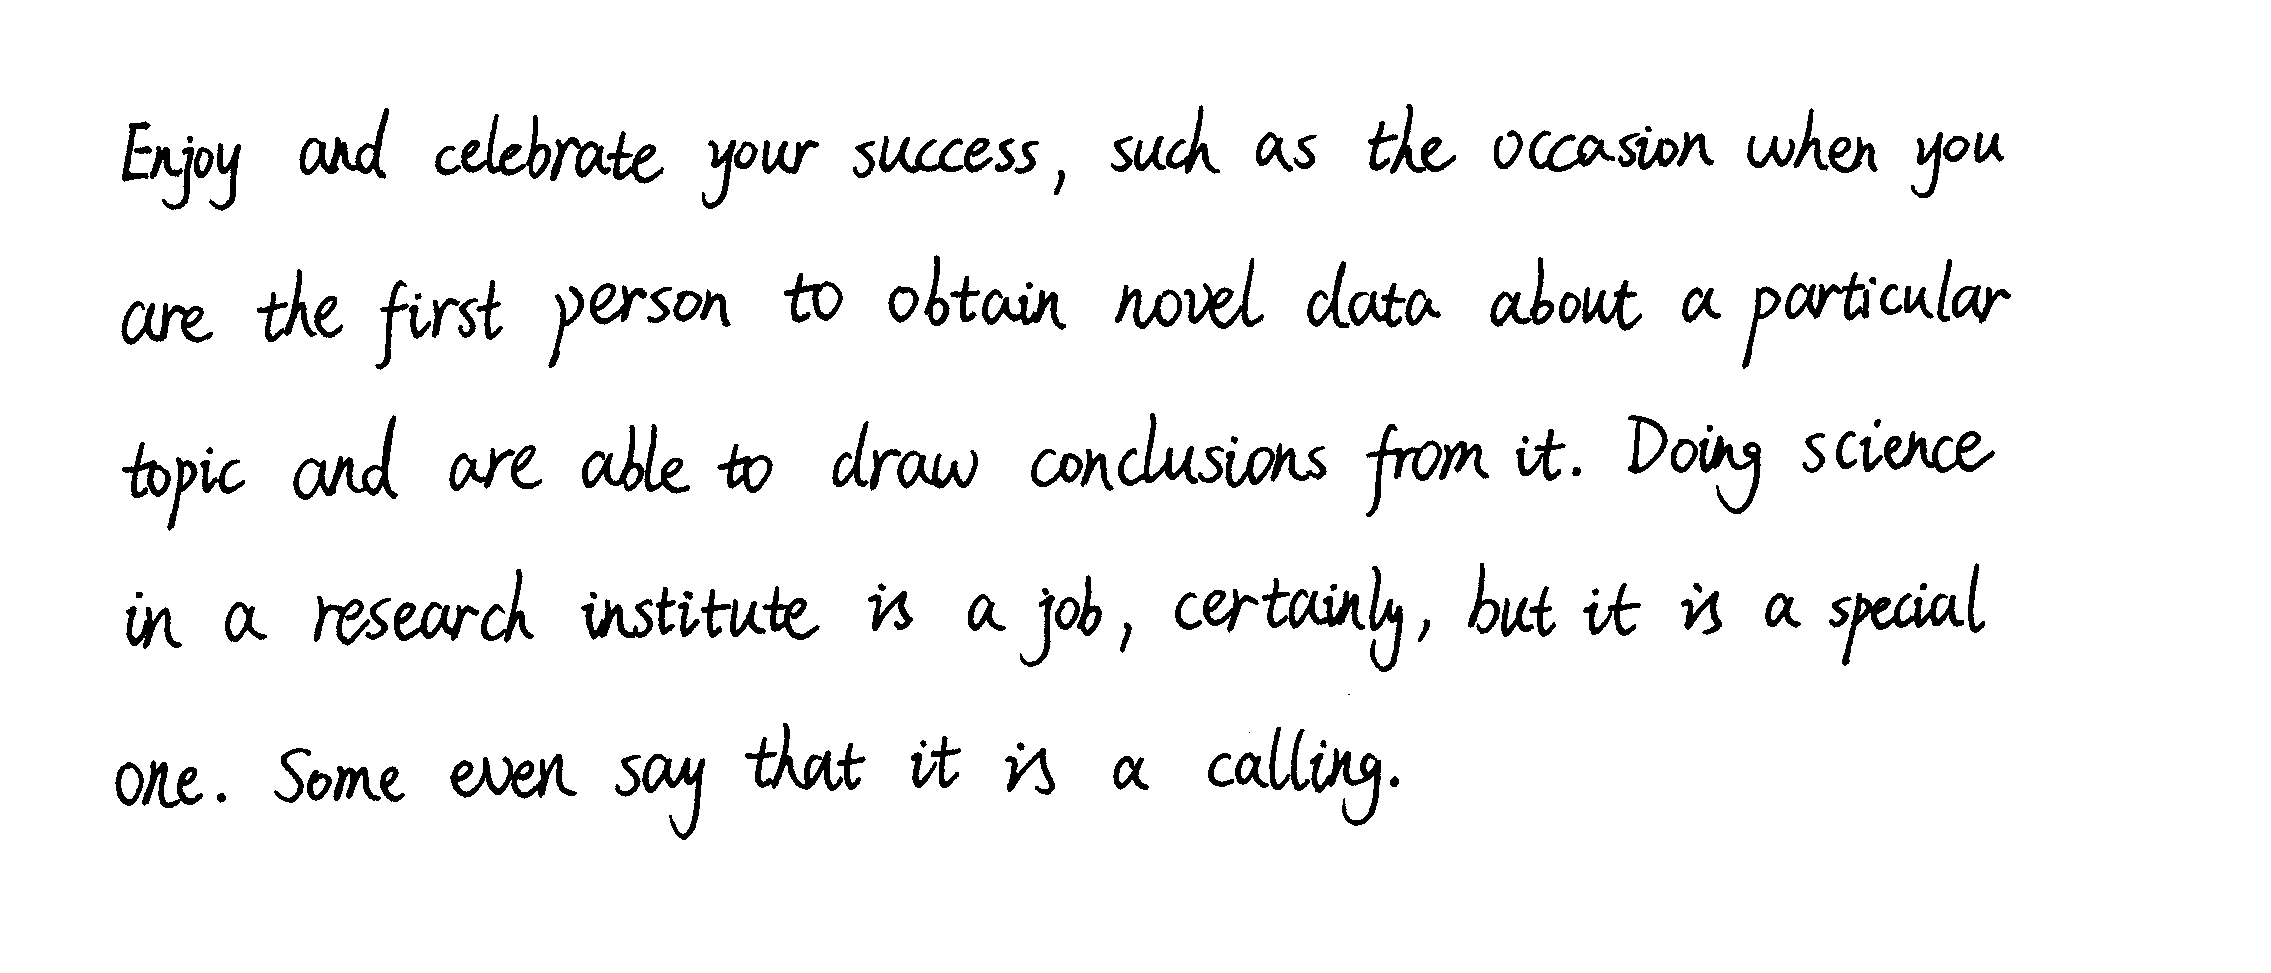 Enjoy and celebrate your success, such as the occasion when you
are the first person to obtain novel data about a particular
topic and are able to draw conclusions from it. Doing science
in a research institute is a job, certainly, but it is a special
one. Some even say that it is a calling.